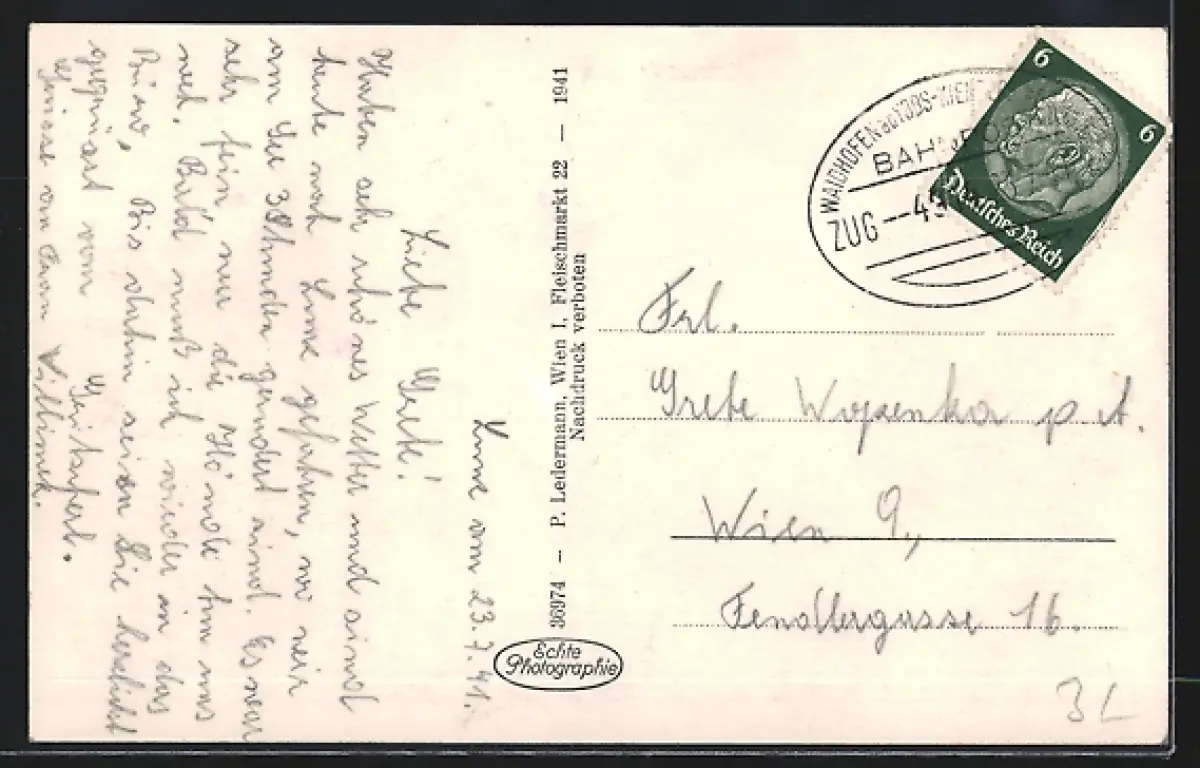 Lunz am 23.7.41.
Liebe Grete!
Haben sehr schönes Wetter und sind
heute nach Lunz gefahren, wo wir
am See 3 Stunden gerudert sind. Es war
sehr fein nur die Hände tun uns
weh. Bald muß ich wieder in das
Büro, Bis dahin seien Sie herzlichst
gegrüßt von
Grüsse von
36974 — P. Ledermann, Wien I, Fleischmarkt 22 — 1941
Nachdruck verboten
Echte
Photographie
WAIDHOFEN a.d. YBBS-WIEN
BAH
ZUG — 49
6
6
Deutsches Reich
Frl.
Grete p. A.
Wien 9.,
Fendlergasse 16.
3L